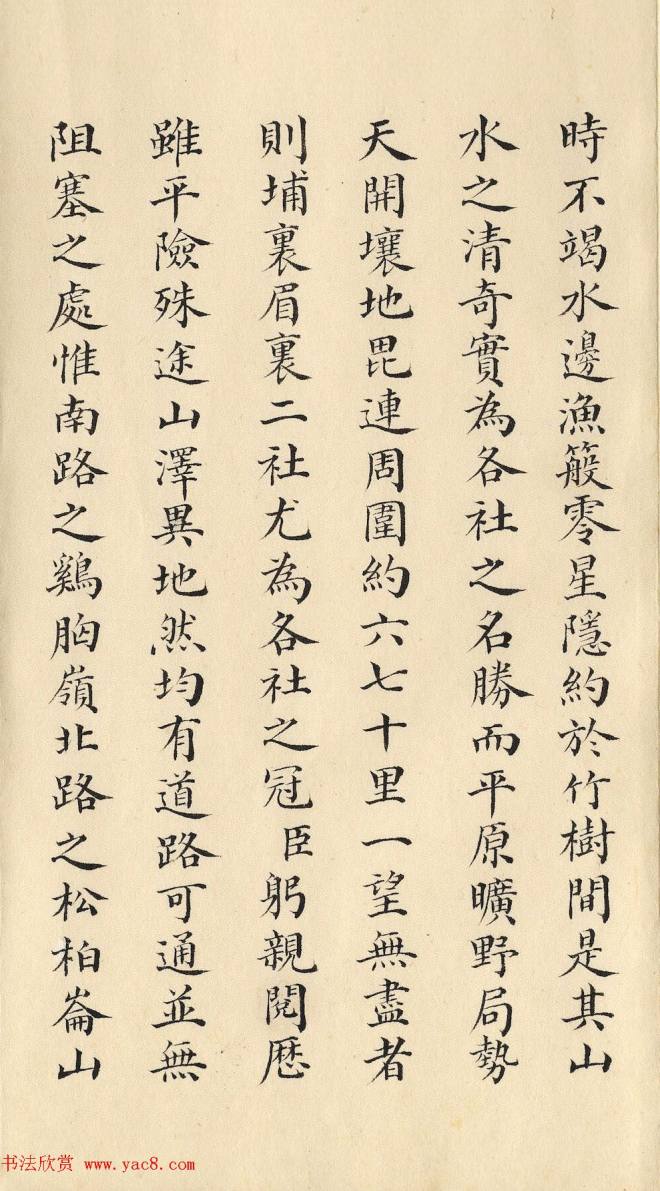 時不竭水邊漁簖零星隱約於竹樹間是其山
水之清奇實為各社之名勝而平原曠野局勢
天開壤地毘連周圍約六七十里一望無盡者
則埔裏眉裏二社尤為各社之冠臣躬親閱歷
雖平險殊途山澤異地然均有道路可通並無
阻塞之處惟南路之鷄胸嶺北路之松柏崙山
书法欣赏 www.yac8.com